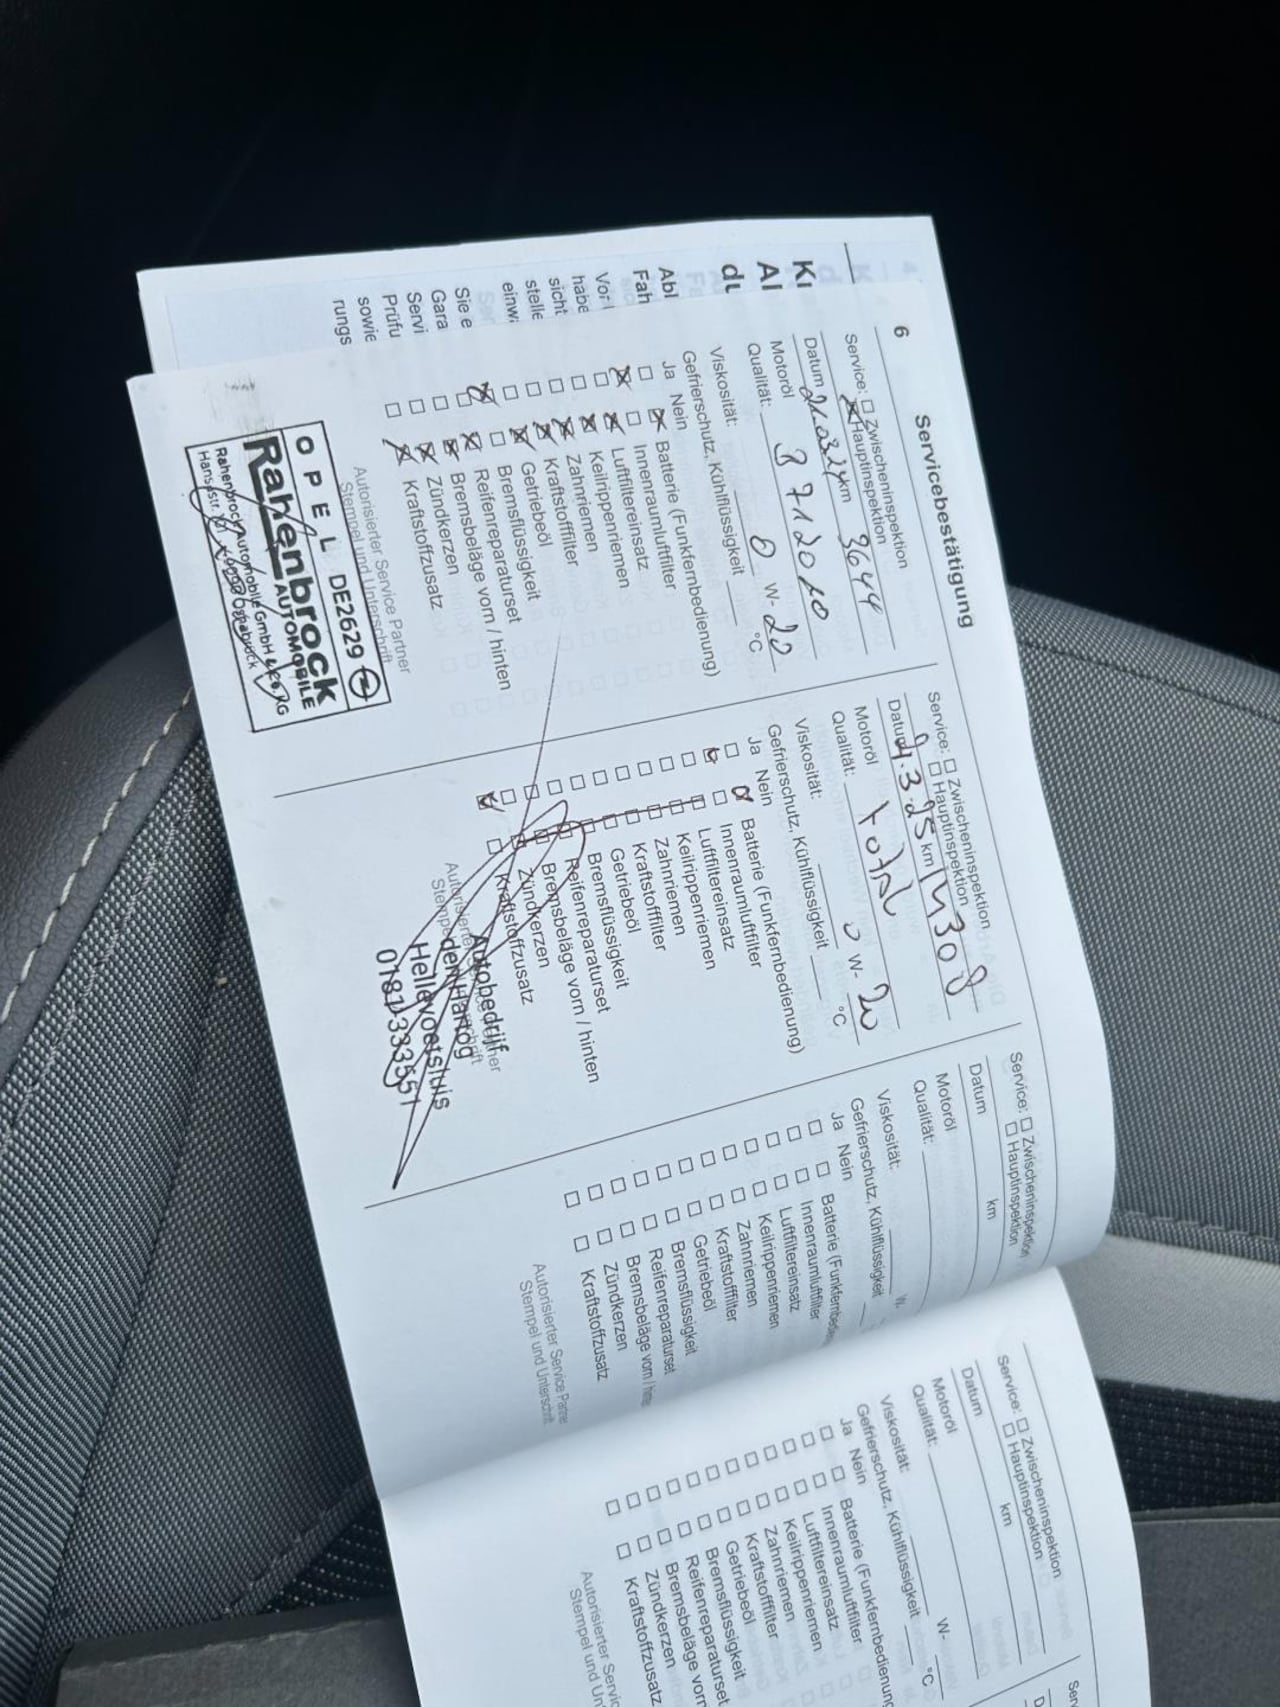 6
Servicebestätigung
Service: Zwischeninspektion
Hauptinspektion
Datum km 3644
Motoröl
Qualität: B 7120 10
Viskosität: 0 W- 20
Gefrierschutz, Kühlflüssigkeit °C
Ja Nein
Batterie (Funkfernbedienung)
Innenraumluftfilter
Luftfiltereinsatz
Keilrippenriemen
Zahnriemen
Kraftstofffilter
Getriebeöl
Bremsflüssigkeit
Reifenreparaturset
Bremsbeläge vorn / hinten
Zündkerzen
Kraftstoffzusatz
Autorisierter Service Partner
Stempel und Unterschrift
OPEL DE2629
Rahenbrock
AUTOMOBILE
Rahenbrock Automobile GmbH & Co. KG
Service: Zwischeninspektion
Hauptinspektion
Datum .3.25 km 14308
Motoröl
Qualität: Total
Viskosität: 0 W- 20
Gefrierschutz, Kühlflüssigkeit °C
Ja Nein
Batterie (Funkfernbedienung)
Innenraumluftfilter
Luftfiltereinsatz
Keilrippenriemen
Zahnriemen
Kraftstofffilter
Getriebeöl
Bremsflüssigkeit
Reifenreparaturset
Bremsbeläge vorn / hinten
Zündkerzen
Kraftstoffzusatz
Autobedrijf
den Hartog
Hellevoetsluis
0181 333551
Service: Zwischeninspektion
Hauptinspektion
Datum km
Motoröl
Qualität:
Viskosität: W-
Gefrierschutz, Kühlflüssigkeit
Ja Nein
Batterie (Funkfernbedie
Innenraumluftfilter
Luftfiltereinsatz
Keilrippenriemen
Zahnriemen
Kraftstofffilter
Getriebeöl
Bremsflüssigkeit
Reifenreparaturset
Bremsbeläge vorn /
Zündkerzen
Kraftstoffzusatz
Autorisierter Service Partne
Stempel und Unterschrift
Service: Zwischeninspektion
Hauptinspektion
Datum km
Motoröl
Qualität:
Viskosität: W-
Gefrierschutz, Kühlflüssigkeit °C
Ja Nein
Batterie (Funkfernbedienung
Innenraumluftfilter
Luftfiltereinsatz
Keilrippenriemen
Zahnriemen
Kraftstofffilter
Getriebeöl
Bremsflüssigkeit
Reifenreparaturset
Bremsbeläge vorn
Zündkerzen
Kraftstoffzusatz
Autorisierter Servic
Stempel und Un